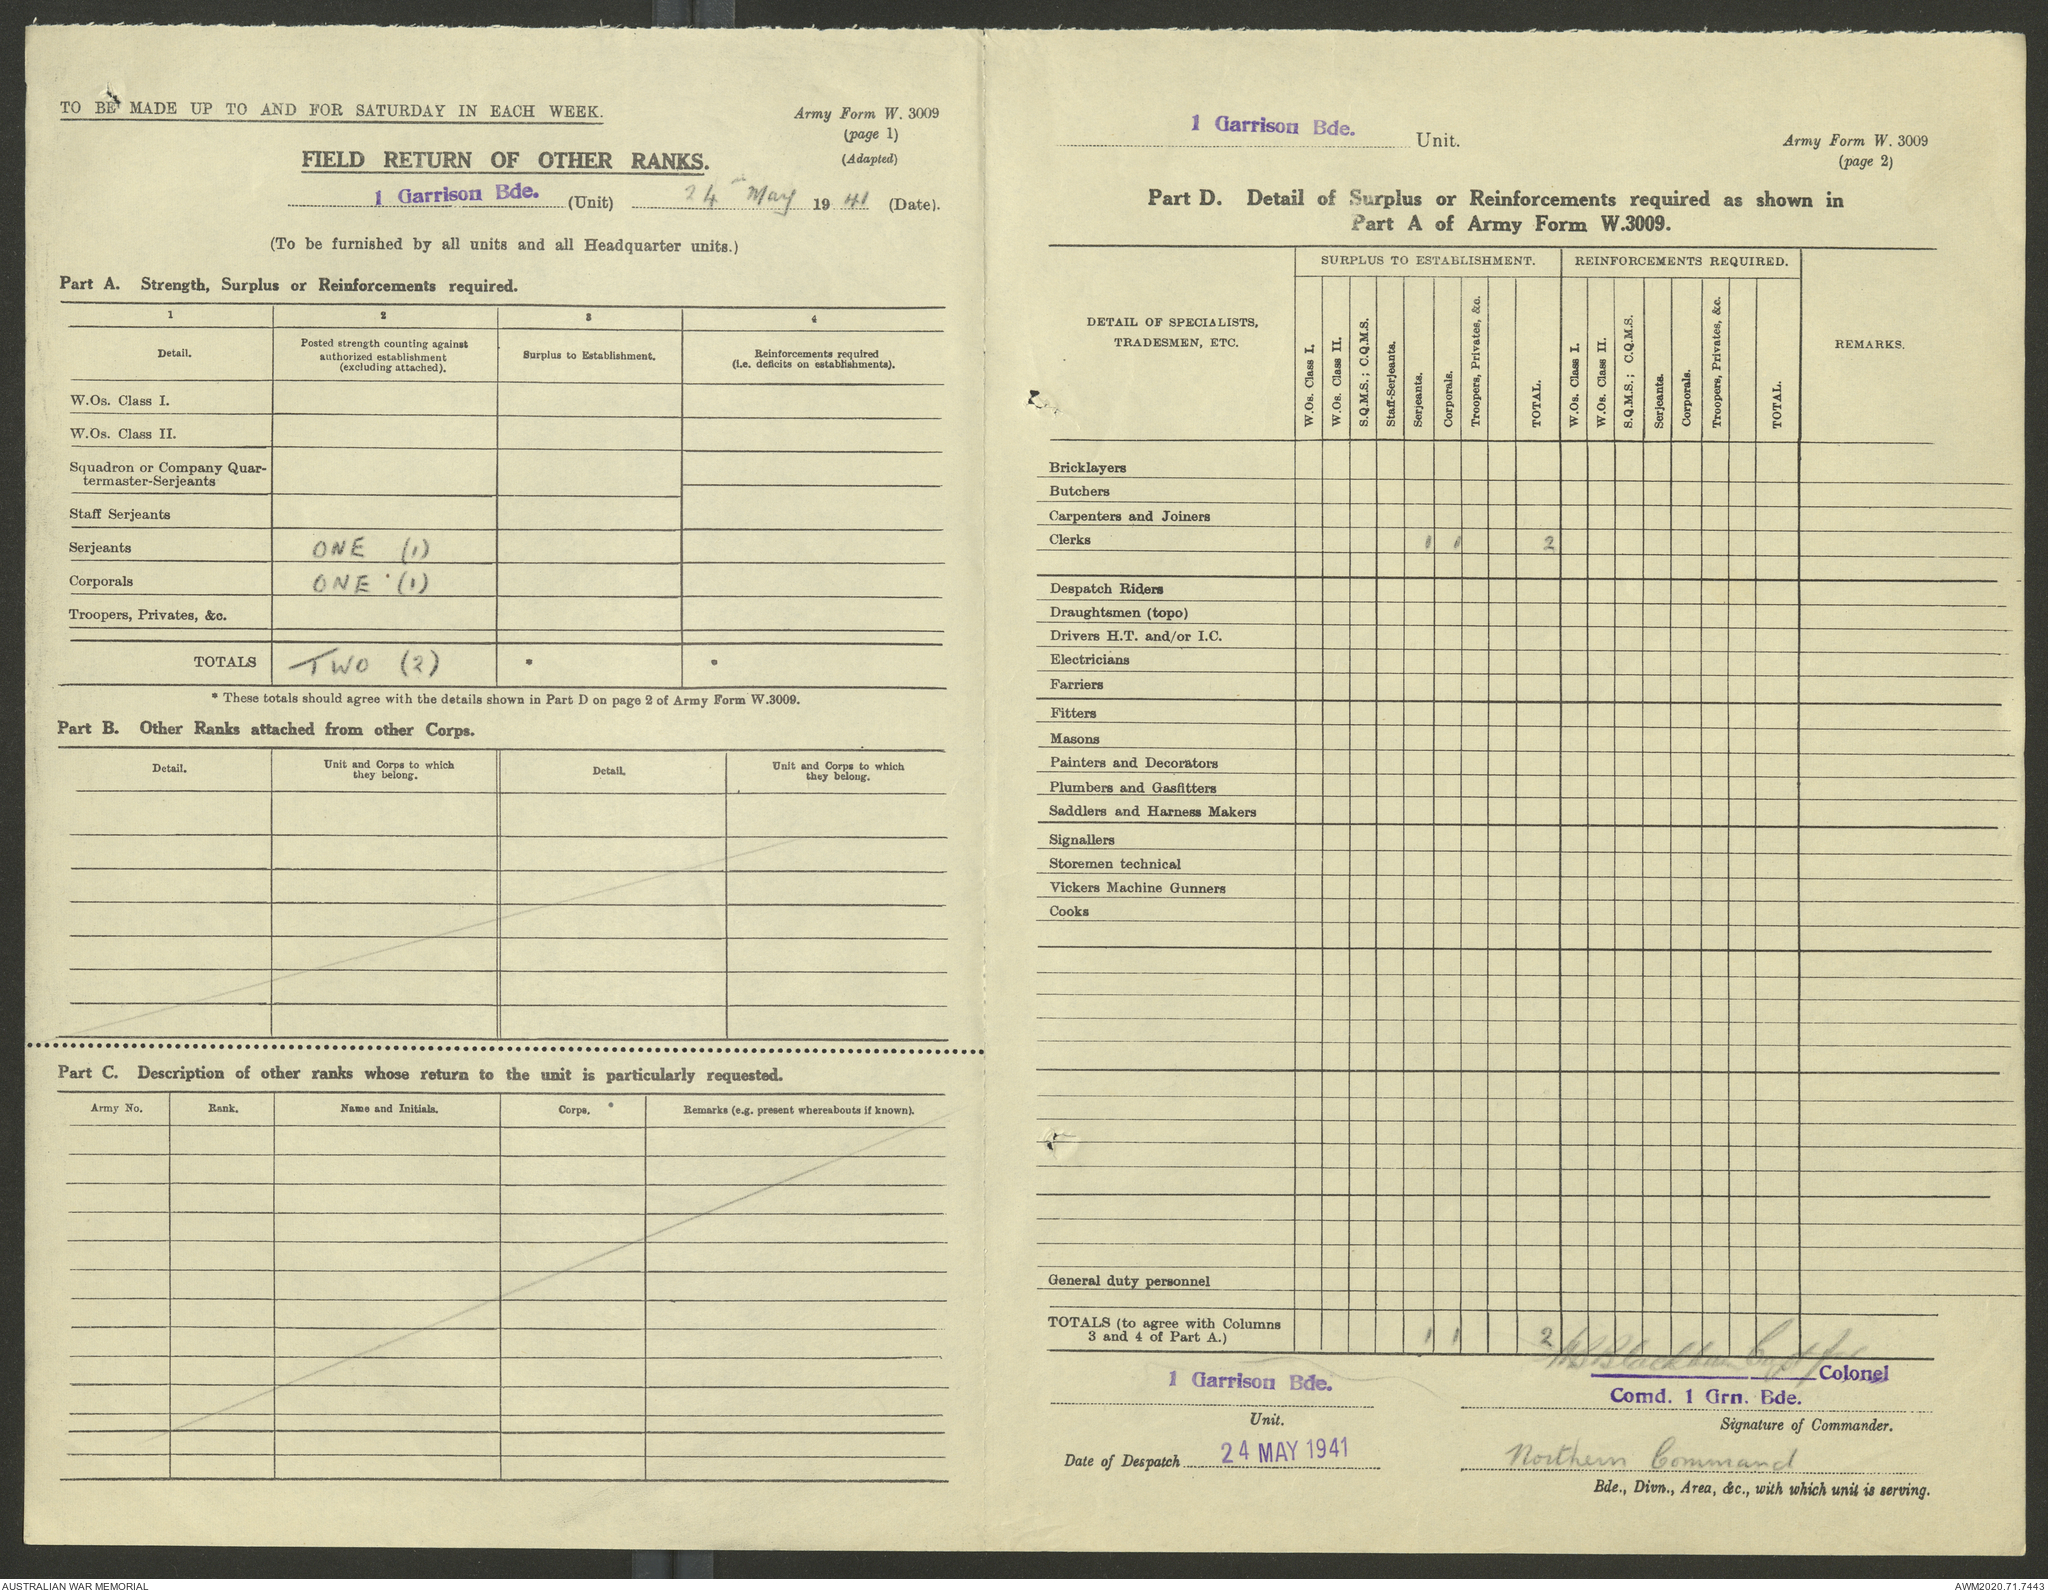 TO BE MADE UP TO AND FOR SATURDAY IN EACH WEEK.
Army Form W. 3009
(page 1)
(Adapted)
FIELD RETURN OF OTHER RANKS.
1 Garrison Bde. (Unit) 24th May 1941 (Date).
(To be furnished by all units and all Headquarter units.)
Part A. Strength, Surplus or Reinforcements required.
1 2 3 4
Detail.
Posted strength counting against
authorized establishment
(excluding attached).
Surplus to Establishment.
Reinforcements required
(i.e. deficits on establishments).
W.Os. Class I.
W.Os. Class II.
Squadron or Company Quar-
termaster-Serjeants
Staff Serjeants
Serjeants ONE (1)
Corporals ONE (1)
Troopers, Privates, &c.
TOTALS TWO (2) * *
* These totals should agree with the details shown in Part D on page 2 of Army Form W.3009.
Part B. Other Ranks attached from other Corps.
Detail.
Unit and Corps to which
they belong.
Detail.
Unit and Corps to which
they belong.
Part C. Description of other ranks whose return to the unit is particularly requested.
Army No. Rank. Name and Initials. Corps. Remarks (e.g. present whereabouts if known).
1 Garrison Bde. Unit.
Army Form W. 3009
(page 2)
Part D. Detail of Surplus or Reinforcements required as shown in
Part A of Army Form W.3009.
DETAIL OF SPECIALISTS,
TRADESMEN, ETC.
SURPLUS TO ESTABLISHMENT.
REINFORCEMENTS REQUIRED.
REMARKS.
W.Os. Class I.
W.Os. Class II.
S.Q.M.S.; C.Q.M.S.
Staff-Serjeants.
Serjeants.
Corporals.
Troopers, Privates, &c.
TOTAL.
W.Os. Class I.
W.Os. Class II.
S.Q.M.S.; C.Q.M.S.
Serjeants.
Corporals.
Troopers, Privates, &c.
TOTAL.
Bricklayers
Butchers
Carpenters and Joiners
Clerks 1 1 2
Despatch Riders
Draughtsmen (topo)
Drivers H.T. and/or I.C.
Electricians
Farriers
Fitters
Masons
Painters and Decorators
Plumbers and Gasfitters
Saddlers and Harness Makers
Signallers
Storemen technical
Vickers Machine Gunners
Cooks
General duty personnel
TOTALS (to agree with Columns
3 and 4 of Part A.) 1 1 2
Blackburn Capt for
Colonel
1 Garrison Bde.
Comd. 1 Grn. Bde.
Unit.
Signature of Commander.
Date of Despatch 24 MAY 1941
Northern Command
Bde., Divn., Area, &c., with which unit is serving.
AUSTRALIAN WAR MEMORIAL
AWM2020.71.7443